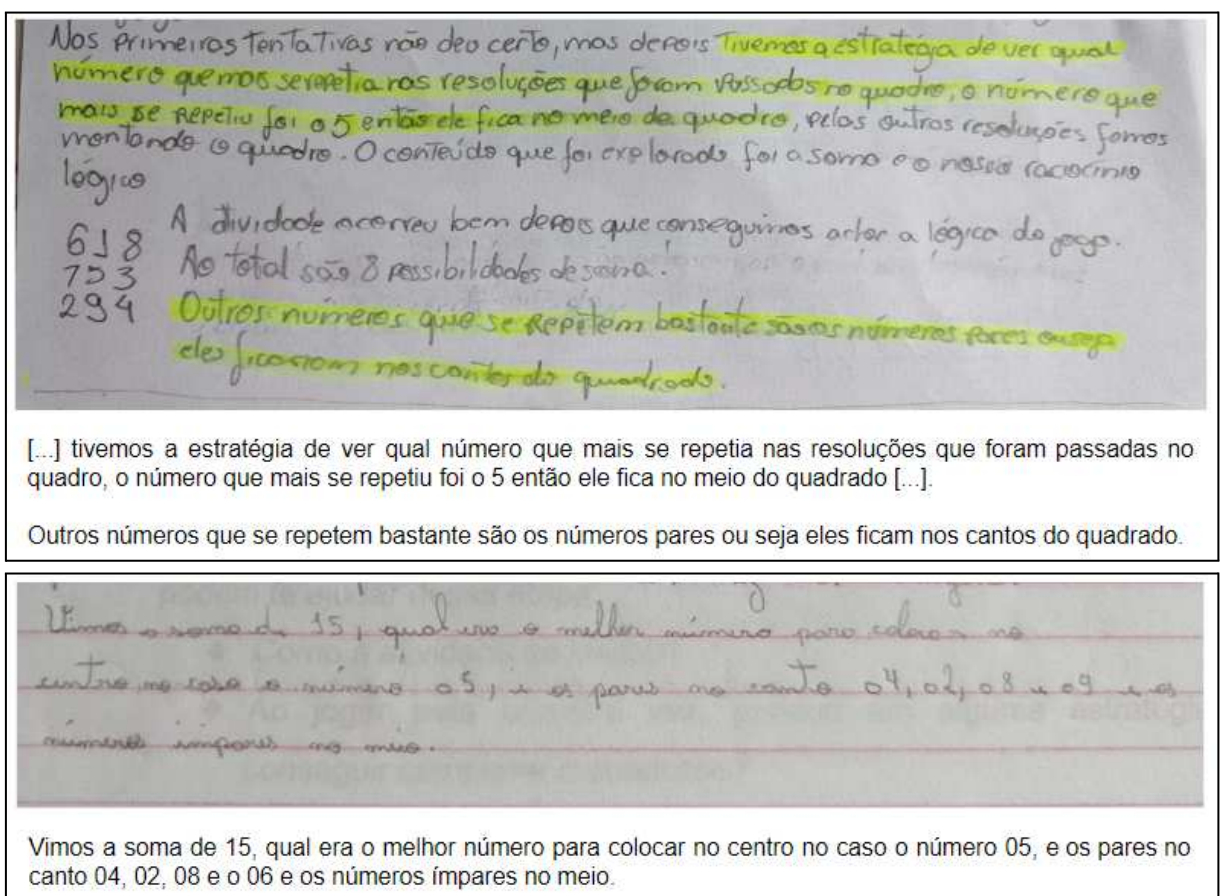 Nos primeiras tentativas não deu certo, mas depois tivemos a estratégia de ver qual
número que mais se repetia nas resoluções que foram passadas no quadro, o número que
mais se repetiu foi o 5 então ele fica no meio do quadro, pelas outras resoluções fomos
montando o quadro. O conteúdo que foi explorado foi a soma e o nosso raciocínio
lógico
A atividade ocorreu bem depois que conseguimos achar a lógica do jogo.
618
Ao total são 8 possibilidades de soma.
753
294 Outros números que se repetem bastante são os números pares ou seja
eles ficariam nos cantos do quadrado.
[...] tivemos a estratégia de ver qual número que mais se repetia nas resoluções que foram passadas no
quadro, o número que mais se repetiu foi o 5 então ele fica no meio do quadrado [...].
Outros números que se repetem bastante são os números pares ou seja eles ficam nos cantos do quadrado.
Vimos a soma de 15, qual era o melhor número para colocar no
centro no caso o número 05, e os pares no canto 04, 02, 08 e 09 e os
números ímpares no meio.
Vimos a soma de 15, qual era o melhor número para colocar no centro no caso o número 05, e os pares no
canto 04, 02, 08 e o 06 e os números ímpares no meio.